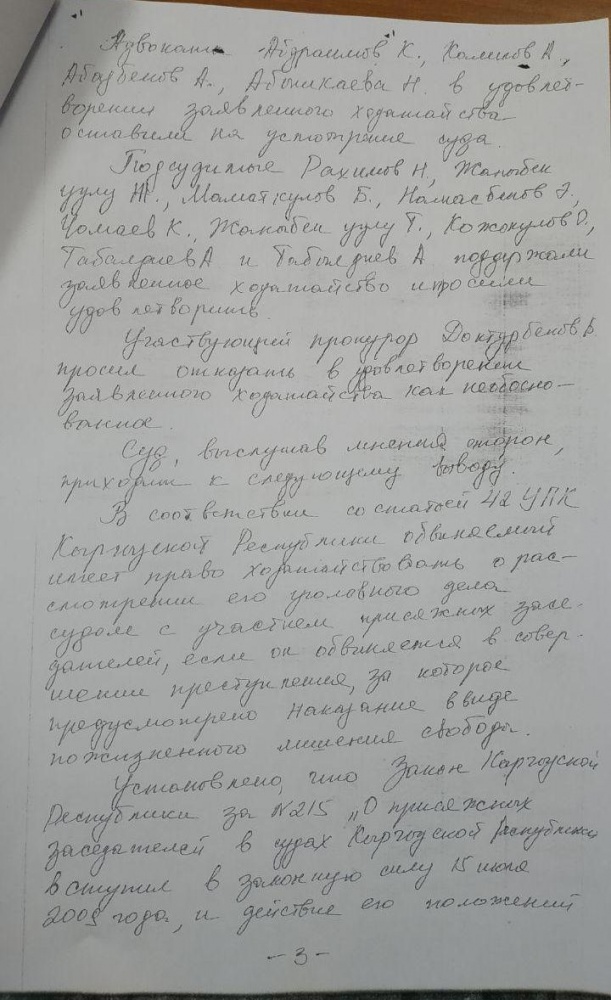 Адвокаты Абдраимов К., Халиков А.,
Абазбеков А., Абышкаева Н. в удовлет-
ворении заявленного ходатайства
оставили на усмотрение суда.
Подсудимые Рахимов Н., Жаныбек
уулу Ж., Маматкулов Б.,
Чомаев К., Жаныбек уулу Т., Кожокулов
и А. поддержали
заявленное ходатайство и просили
удовлетворить.
Участвующий прокурор Доктурбеков
просил отказать в удовлетворении
заявленного ходатайства как необосно-
ванное.
Суд, выслушав мнения сторон,
приходит к следующему выводу.
В соответствии со статьей 42 УПК
Кыргызской Республики обвиняемый
имеет право ходатайствовать о рас-
смотрении его уголовного дела
судом с участием присяжных засе-
дателей, если он обвиняется в совер-
шении преступления, за которое
предусмотрено наказание в виде
пожизненного лишения свободы.
Установлено, что Закон Кыргызской
Республики за №215 „О присяжных
заседателей в судах Кыргызской Республики
вступил в законную силу 15 июля
2009 года, и действие его положений
- 3 -